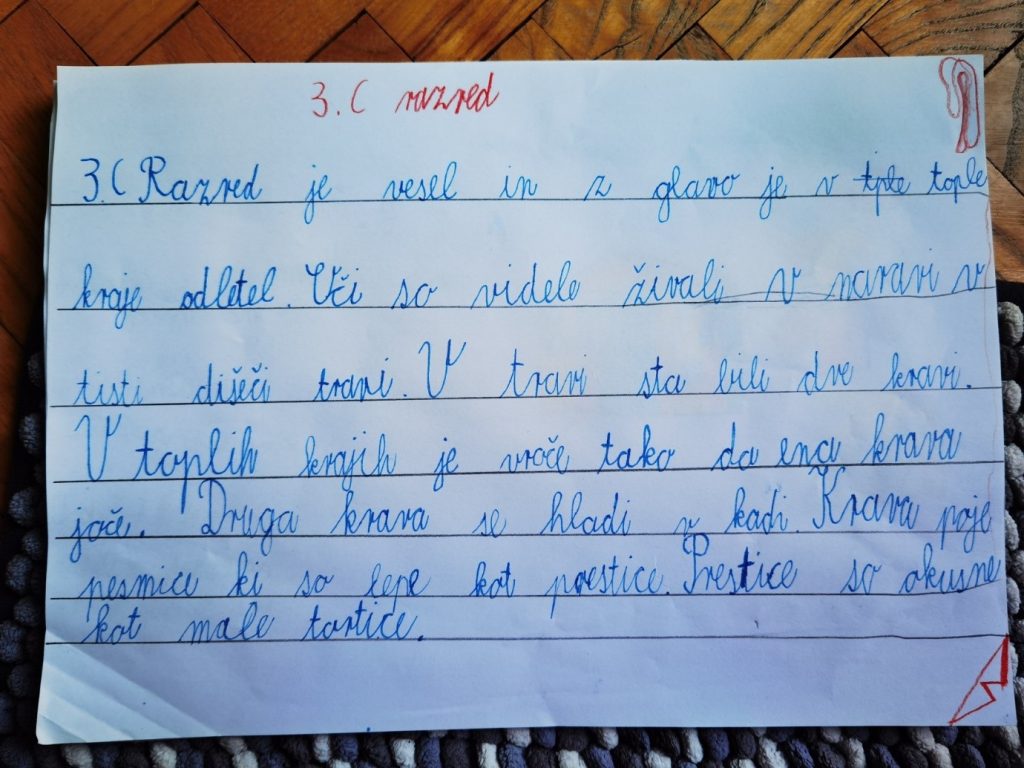 3. C razred
3. C Razred je vesel in z glavo je v tple tople
kraje odletel. Uči so videle živali v naravi v
tisti dišeči travi. V travi sta bili dve kravi.
V toplih krajih je vroče tako da ena krava
joče. Druga krava se hladi v kadi. Krava poje
pesmice ki so lepe kot prestice. Prestice so okusne
kot male tortice.